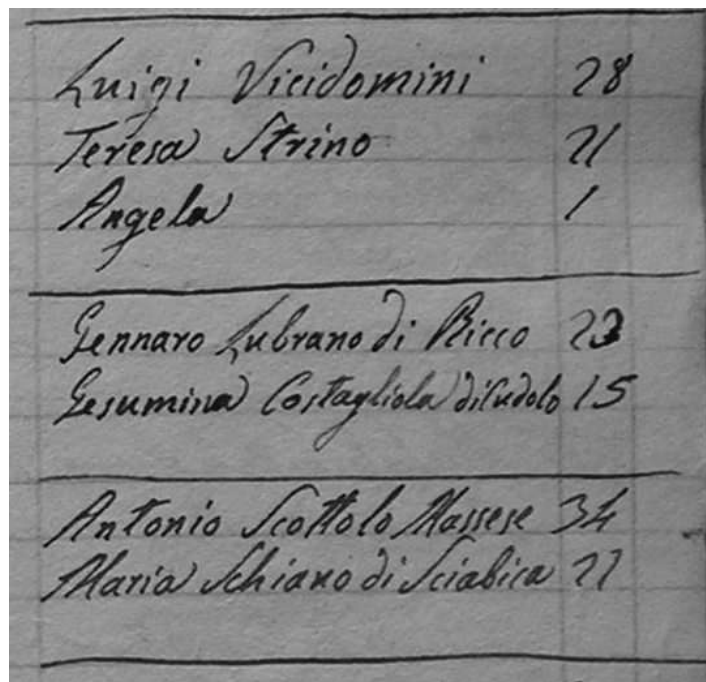 Luigi Vicidomini 28
Teresa Strino 21
Angela 1
Gennaro Lubrano di Ricco 23
Gesumina Costagliola di Cudolo 15
Antonio Scotto lo Massese 34
Maria Schiano di Sciabica 22